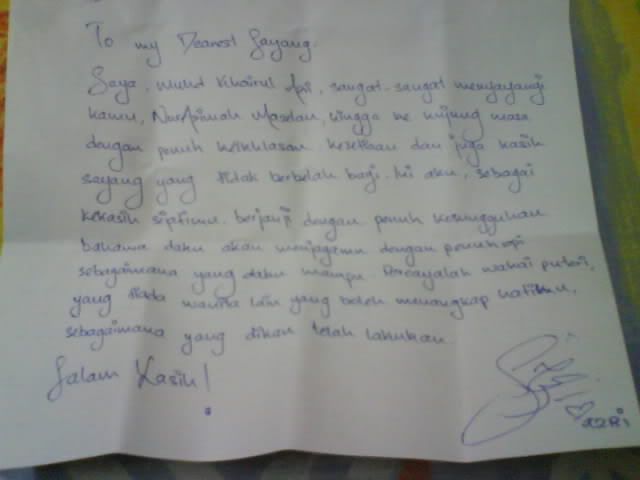 To my Dearest Sayang.
Saya, Muhd Khairul Azri, sangat-sangat menyayangi
kamu, NurAzimah Masdan, hingga ke hujung masa
dengan penuh keikhlasan kesetiaan dan juga kasih
sayang yang tidak berbelah bagi. Ini aku, sebagai
kekasih berjanji dengan penuh kesungguhan
bahawa daku akan menjagamu dengan penuh
sebagaimana yang daku mampu. Percayalah wahai puteri,
yang tiada wanita lain yang boleh menangkap hatiku,
sebagaimana yang dikau telah lakukan.
Salam Kasih!